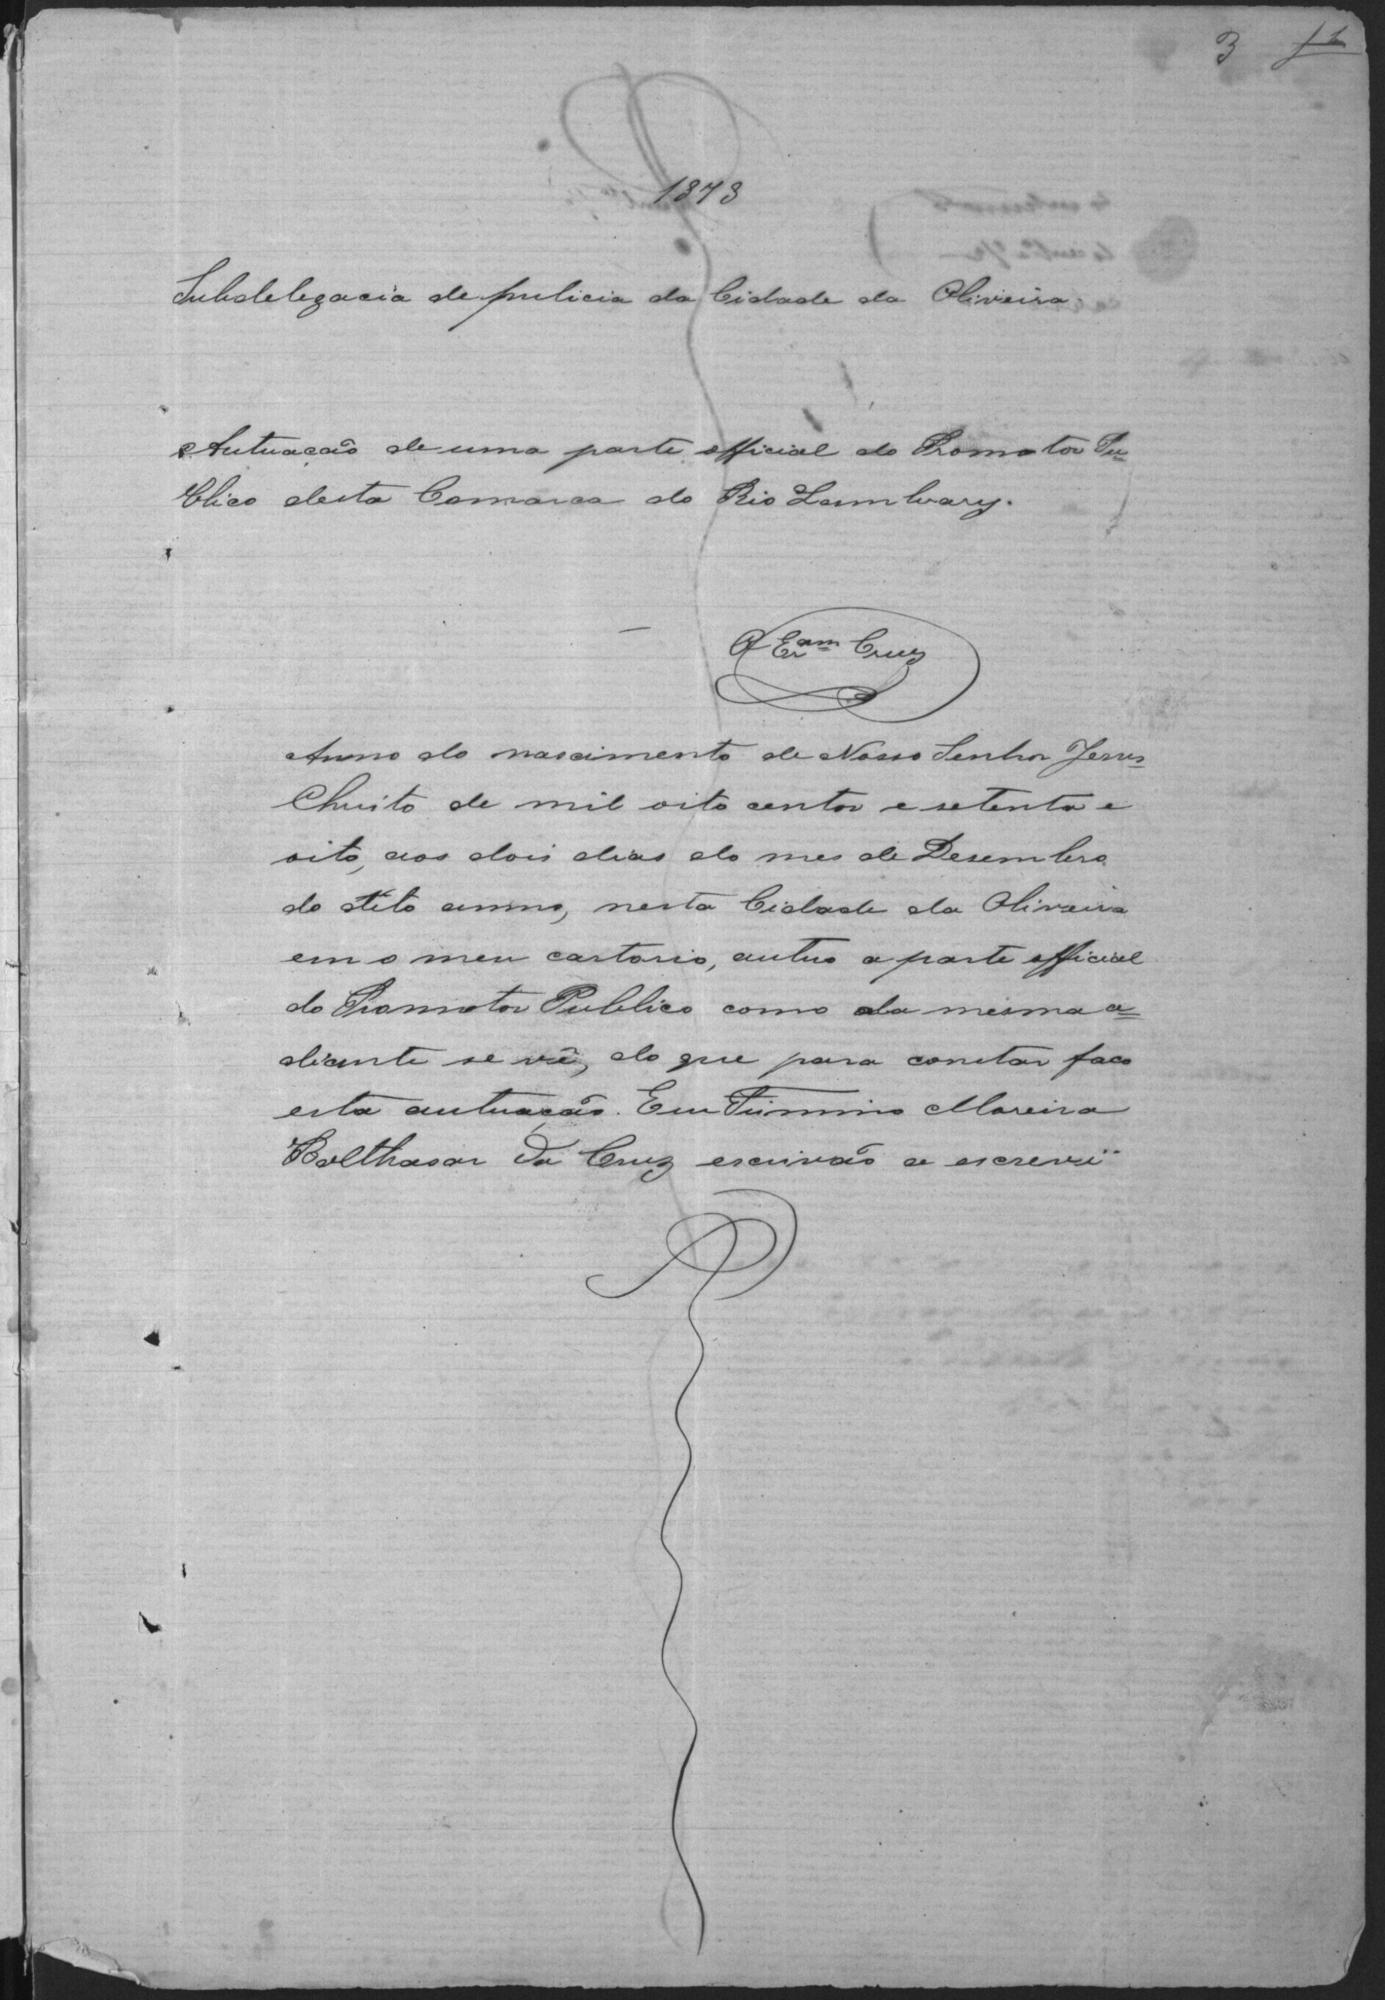 3 f 1
1878
Subdelegacia de pulicia da Cidade da Oliveira
Autuação de uma parte official do Promotor Pu=
blico desta Comarca do Rio Lambary.
O Eam Cruz
Anno do nascimento de Nosso Senhor Jesus
Christo de mil oito centos e setenta e
oito, aos dois dias do mes de Desembro
do dito anno, nesta Cidade da Oliveira
em o meu cartorio, autuo a parte official
do Promotor Publico como da mesma a=
diante se vê, do que para constar faco
esta autuação. Eu Firmino Moreira
Balthasar da Cruz escrivão a escrevi